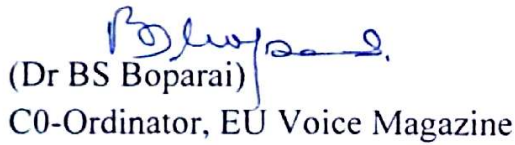 BS Boparai.
(Dr BS Boparai)
C0-Ordinator, EU Voice Magazine